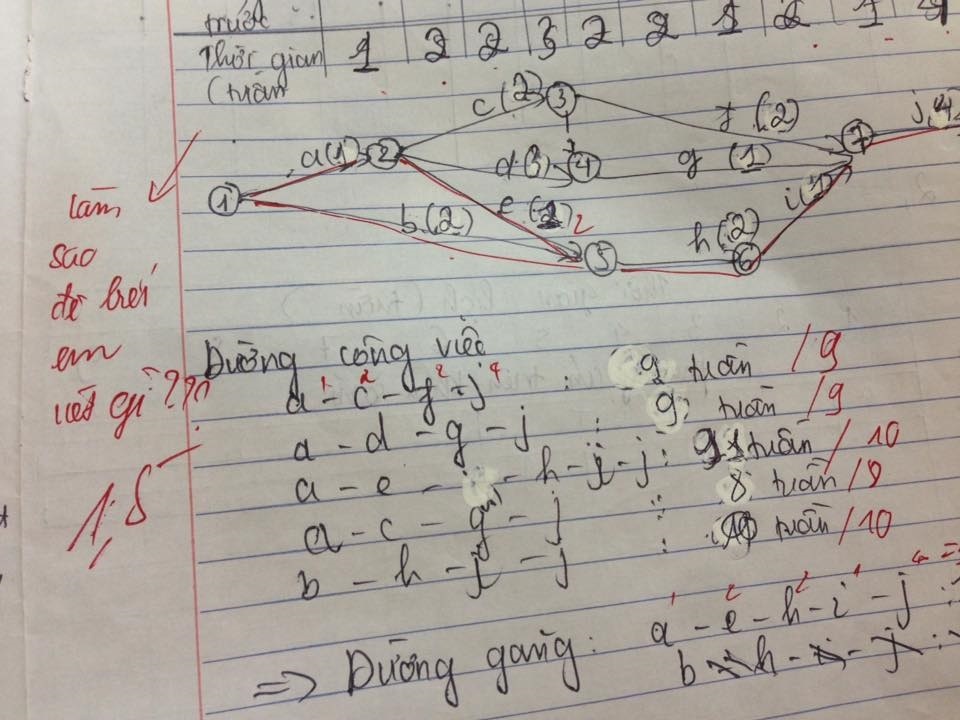 trước
Thời gian 1 2 2 3 2 2 1 2 1 4
(tuần
c(2) 3 f(2) j(4)
a(1) 2 d(3) 4 g(1) 7
1 b(2) e(2) 2 5 h(2) 6 i(1)
làm
sao
để biết
em
viết gì???
1,5
Đường công việc
a - c - f - j : 9 tuần /9
1 2 2 4
a - d - g - j : 9 tuần /9
a - e - h - i - j : tuần /10
a - c - g - j : 8 tuần /8
b - h - i - j : tuần /10
=> Đường găng: a - e - h - i - j
1 2 2 1 4 =
b h - j